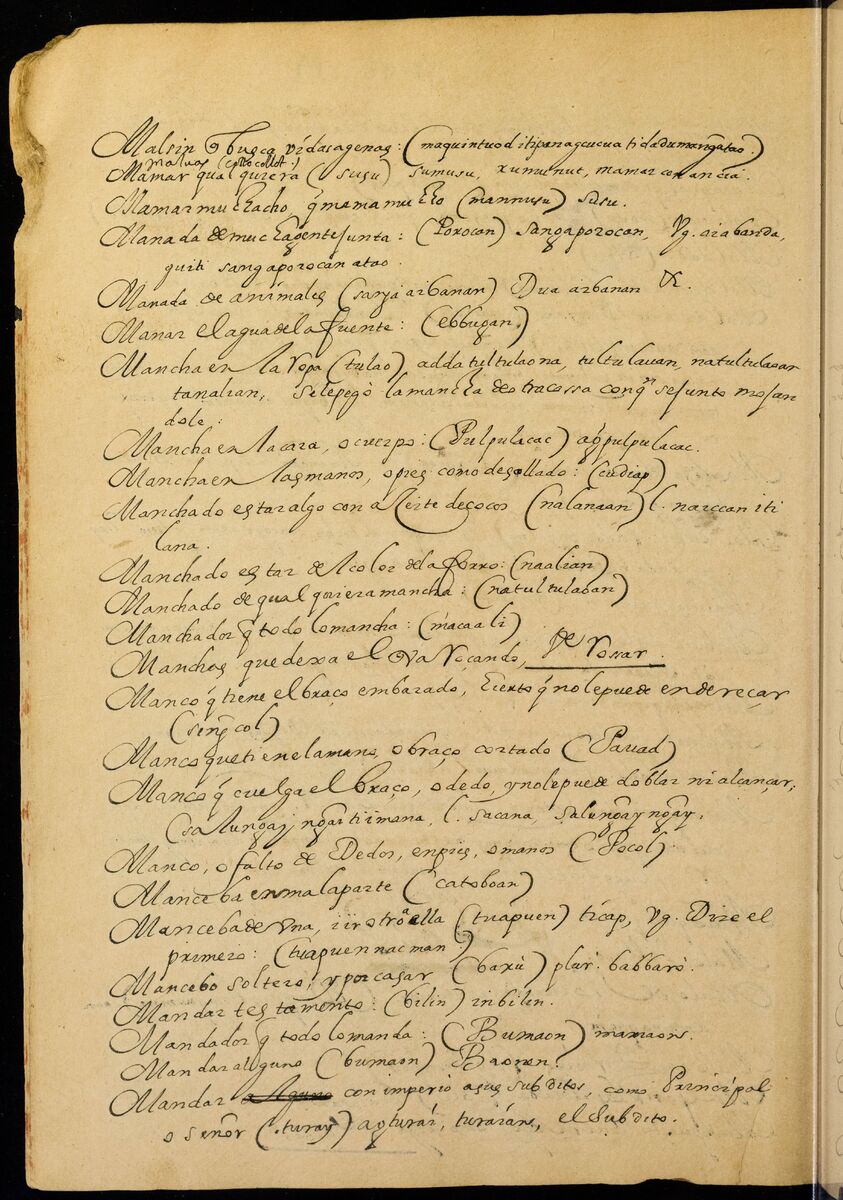 Malsin q̃ busca vidas agenas: (maquintuod iti panagcucua ti dadumangatao.)
malvas (collot.)
Mamar qual quiera (susu) sumusu, xumunut, mamar con ancia.
Mamar muchacho, q̃ mama mucho (mannusu) susu.
Manada de mucha gente junta: (Porocan) sangaporocan, Vg. aiabanda,
quiti sangaporocan atao.
Manada de animales (sanga arbanan) Dua arbanan &.
Manar el agua de la fuente: (ebbugan.)
Mancha en la ropa (tulao) adda tultulaona, tultulauan, natultulaoan
tanalian, se le pegò la mancha de otra cossa con qn se junto mojan
dole.
Mancha en la cara, o cuerpo: (Pulpulacac) agpulpulacac.
Mancha en las manos, o pies como desollado: (cudiap)
Manchado estar algo con aseite de cocos (nalanaan) l. narccan iti
lana.
Manchado estar del color de la forro: (naalian)
Manchado de qual quiera mancha: (natultulaoan)
Manchador q̃ todo lo mancha: (macaali)
Manchas que dexa el q̃ va roçando, de Rossar.
Manco q̃ tiene el braço embarado, tierto q̃ no le puede endereçar
(sing̃col)
Manco que tiene la mano, o braço cortado (Pauad)
Manco q̃ cuelga el braço, o dedo, y no le puede doblar ni alcançar;
(salungay ng̃ay ti imana, l. sacana, salung̃ay ng̃ay.
Manco, o falto de Dedos, en pies, o manos (Pocol)
Manceba en mala parte (catoboan)
Manceba de una, i ir otro a ella (tuapuen) ticap, Vg. Dize el
primero: (tuapuennacman)
Mancebo soltero, y por casar (baxù) plur. babbarò.
Mandar testamento: (bilin) inbilin.
Mandador q̃ todo lo manda: (Bumaon) mamaon.
Mandar alguno (bumaon) Baonen.
Mandar a Alguno con imperio a sus subditos, como Principal,
o señor (turay) agturai, turaian, el Subdito.